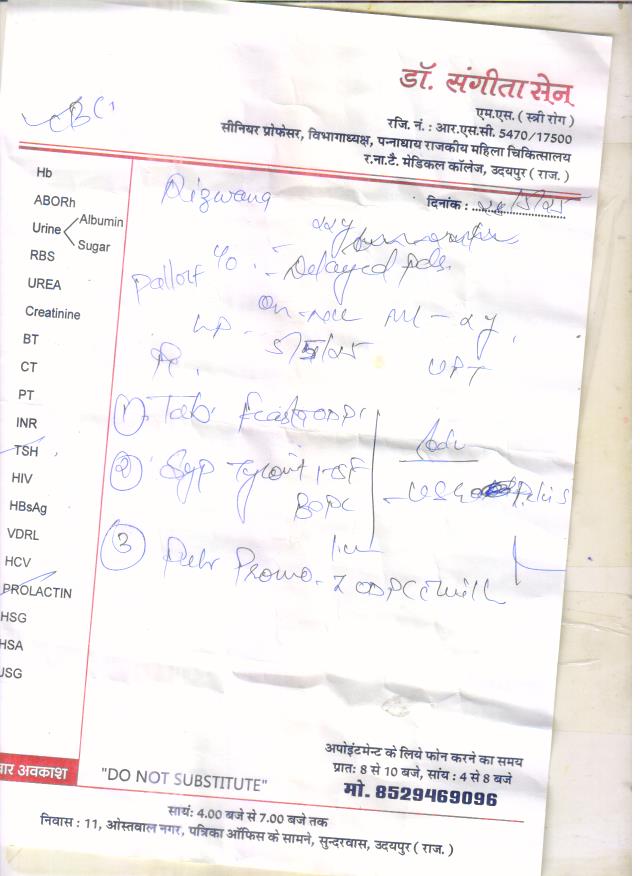 डॉ. संगीता सेन
एम.एस. ( स्त्री रोग )
रजि. नं. : आर.एस.सी. 5470/17500
सीनियर प्रोफेसर, विभागाध्यक्ष, पन्नाधाय राजकीय महिला चिकित्सालय
र.ना.टै. मेडिकल कॉलेज, उदयपुर ( राज. )
दिनांक :
CBC
Hb
ABORh
Urine Albumin
Sugar
RBS
UREA
Creatinine
BT
CT
PT
INR
TSH
HIV
HBsAg
VDRL
HCV
PROLACTIN
HSG
HSA
USG
Rizwana
22y
Pallor c/o - Delayed
ML - 2y
5/5/25
UPT
1). Tab. OD PC
2) Syp
BDPC
3) Promo. OD PC c milk
Adv
USG Pelvis
वार अवकाश
"DO NOT SUBSTITUTE"
अपोइंटमेन्ट के लिये फोन करने का समय
प्रातः 8 से 10 बजे, सांय : 4 से 8 बजे
मो. 8529469096
सायं: 4.00 बजे से 7.00 बजे तक
निवास : 11, ओस्तवाल नगर, पत्रिका ऑफिस के सामने, सुन्दरवास, उदयपुर ( राज. )